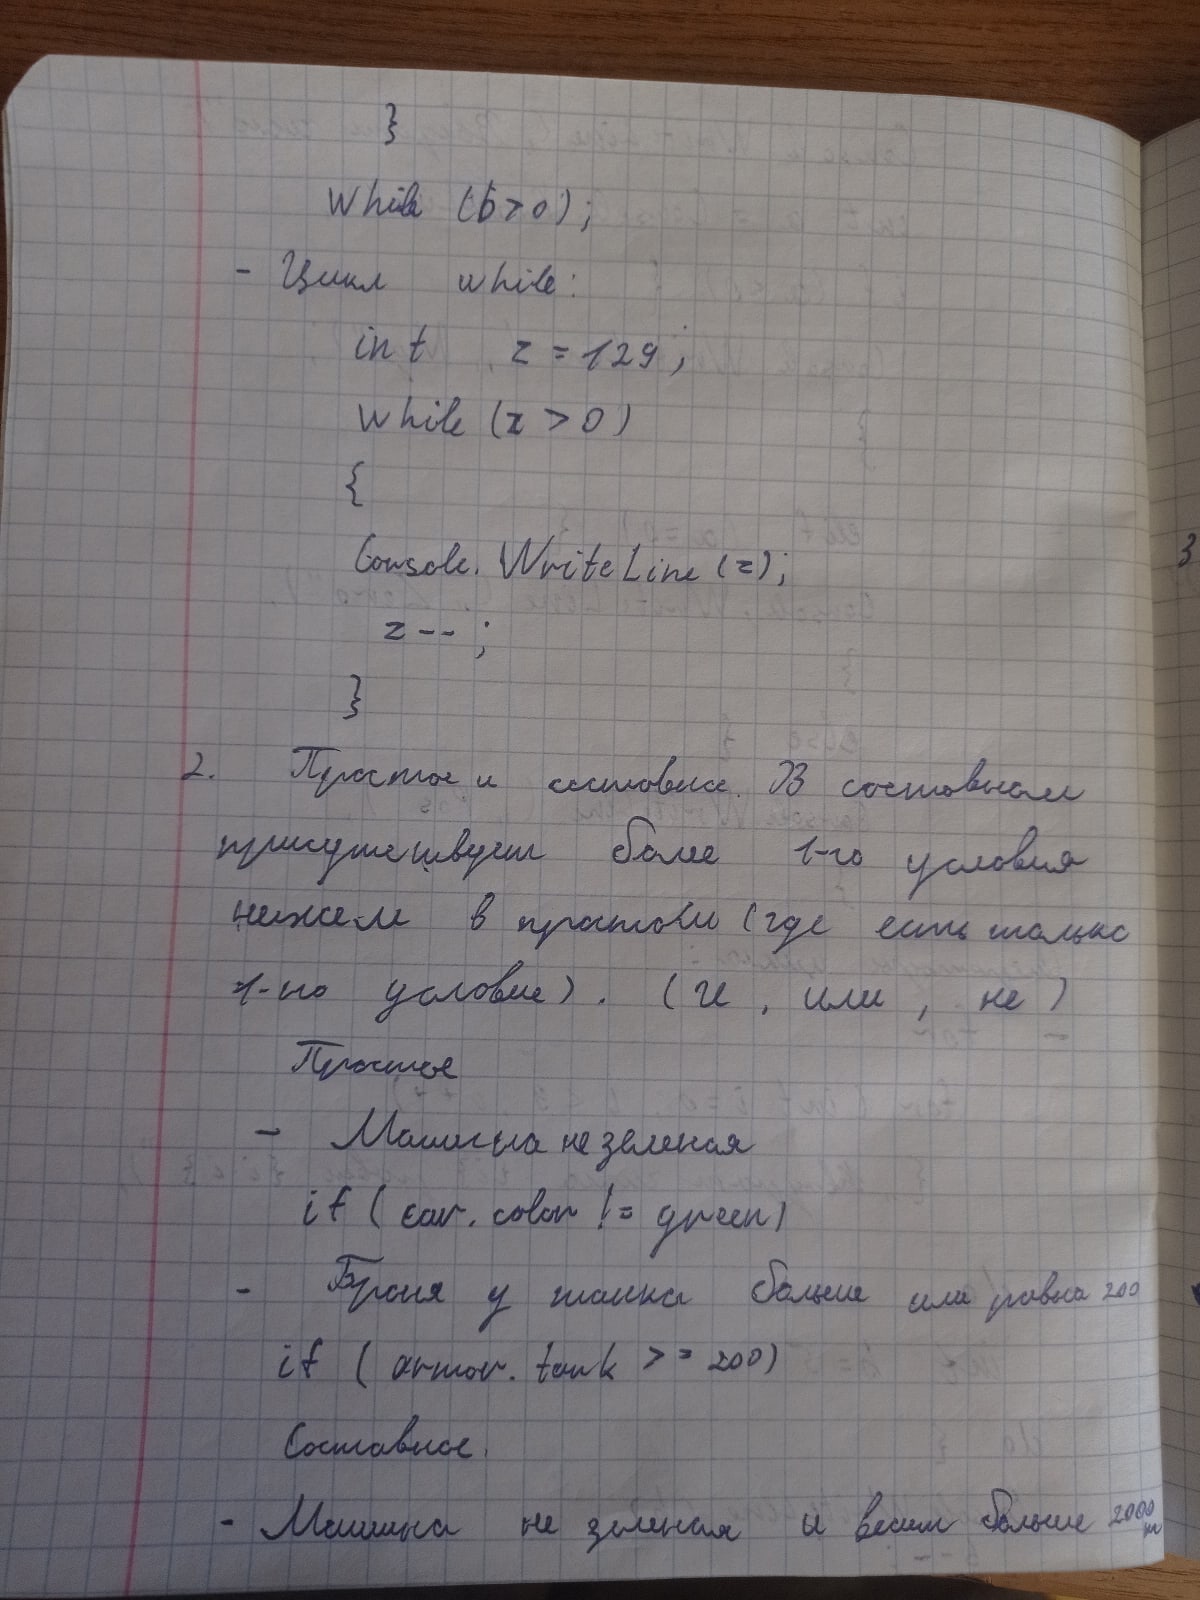 }
while (b>0);
- Цикл while:
int z = 129;
while (z > 0)
{
Console. WriteLine (z);
z-- ;
}
2. Простое и составное. В составном
присутствует более 1-го условия
нежели в простом (где есть только
1-но условие). (И, или, не)
Простое
- Машина не зеленая
if (car. color != green)
- Броня у танка больше или равна 200
if (armor. tank >= 200)
Составное.
- Машина не зеленая и весит больше 2000
3